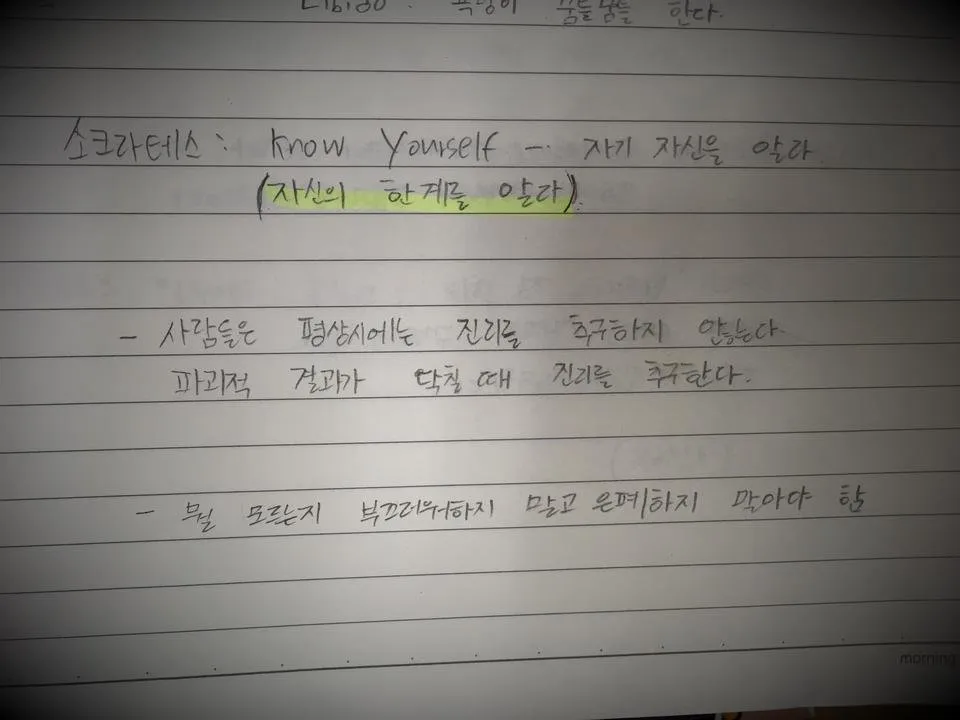 Libido : 폭넓이 꿈틀꿈틀 한다.
소크라테스 : Know Yourself - 자기 자신을 알라
(자신의 한계를 알다)
- 사람들은 평상시에는 진리를 추구하지 않는다
파괴적 결과가 닥칠 때 진리를 추구한다.
- 뭘 모르는지 부끄러워하지 말고 은폐하지 막아야 함
morning